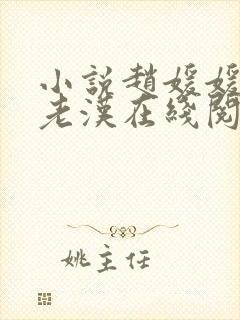 小說趙媛媛
老漢在綫閱
姚主任